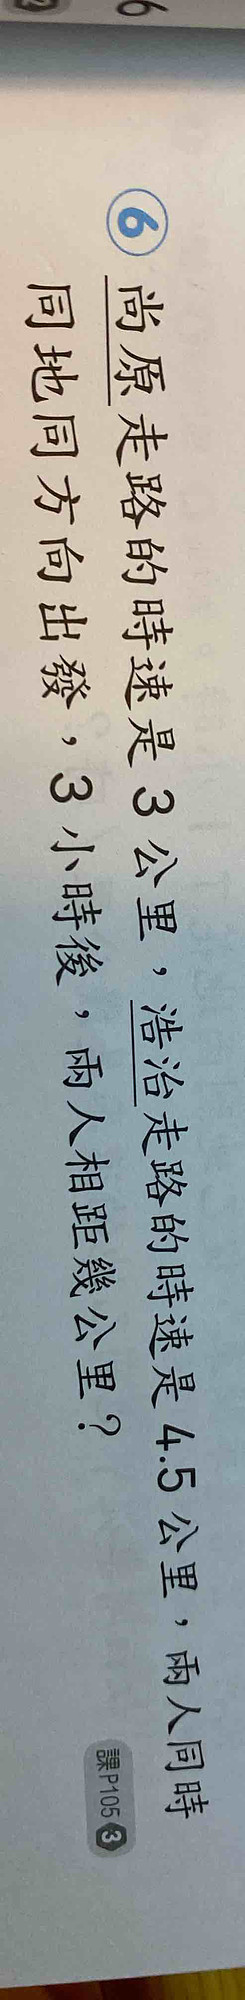 6
⑥ 尚原走路的時速是3公里，浩治走路的時速是4.5公里，兩人同時
同地同方向出發，3小時後，兩人相距幾公里？
課P105 3